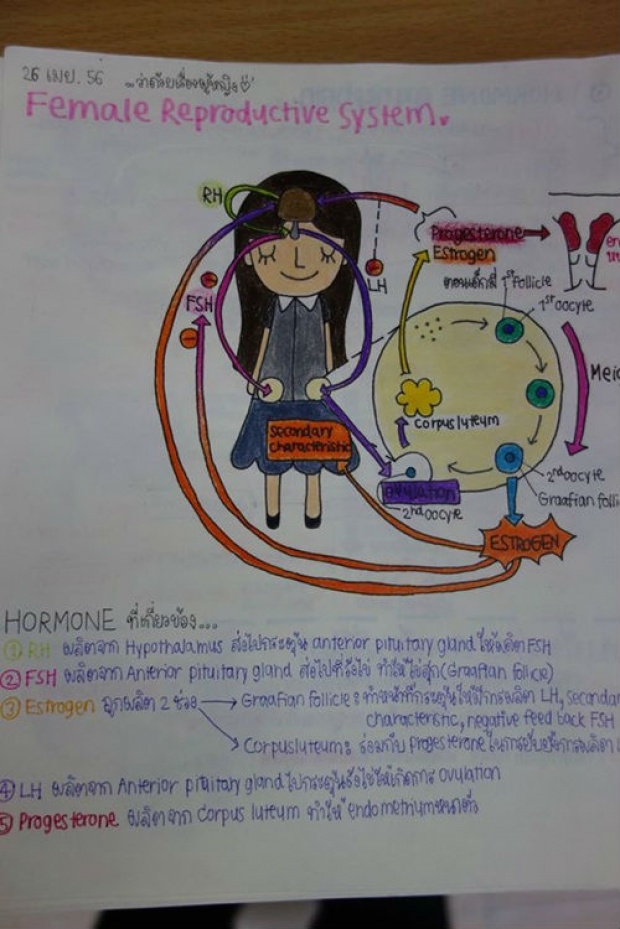 26 เมย. 56 ...ว่าด้วยเรื่องผู้หญิง
Female Reproductive System.
RH
Progesterone
Estrogen
LH
FSH
1st follicle
1st oocyte
Meio
Corpus luteum
secondary
characteristic
2nd oocyte
Graafian folli
Ovulation
2nd oocyte
ESTROGEN
HORMONE ที่เกี่ยวข้อง...
① RH ผลิตจาก Hypothalamus ส่งไปกระตุ้น anterior pituitary gland ให้ผลิต FSH
② FSH ผลิตจาก Anterior pituitary gland ส่งไปที่รังไข่ ทำให้ไข่สุก (Graafian follicle)
③ Estrogen ถูกผลิต 2 ช่วง → Graafian follicle : ทำหน้าที่กระตุ้นให้มีการผลิต LH, secondar
characteristic, negative feed back FSH
→ Corpus luteum : ร่วมกับ progesterone ในการยับยั้งการผลิต
④ LH ผลิตจาก Anterior pituitary gland ไปกระตุ้นรังไข่ให้เกิดการ ovulation
⑤ Progesterone ผลิตจาก Corpus luteum ทำให้ endometrium หนาตัว